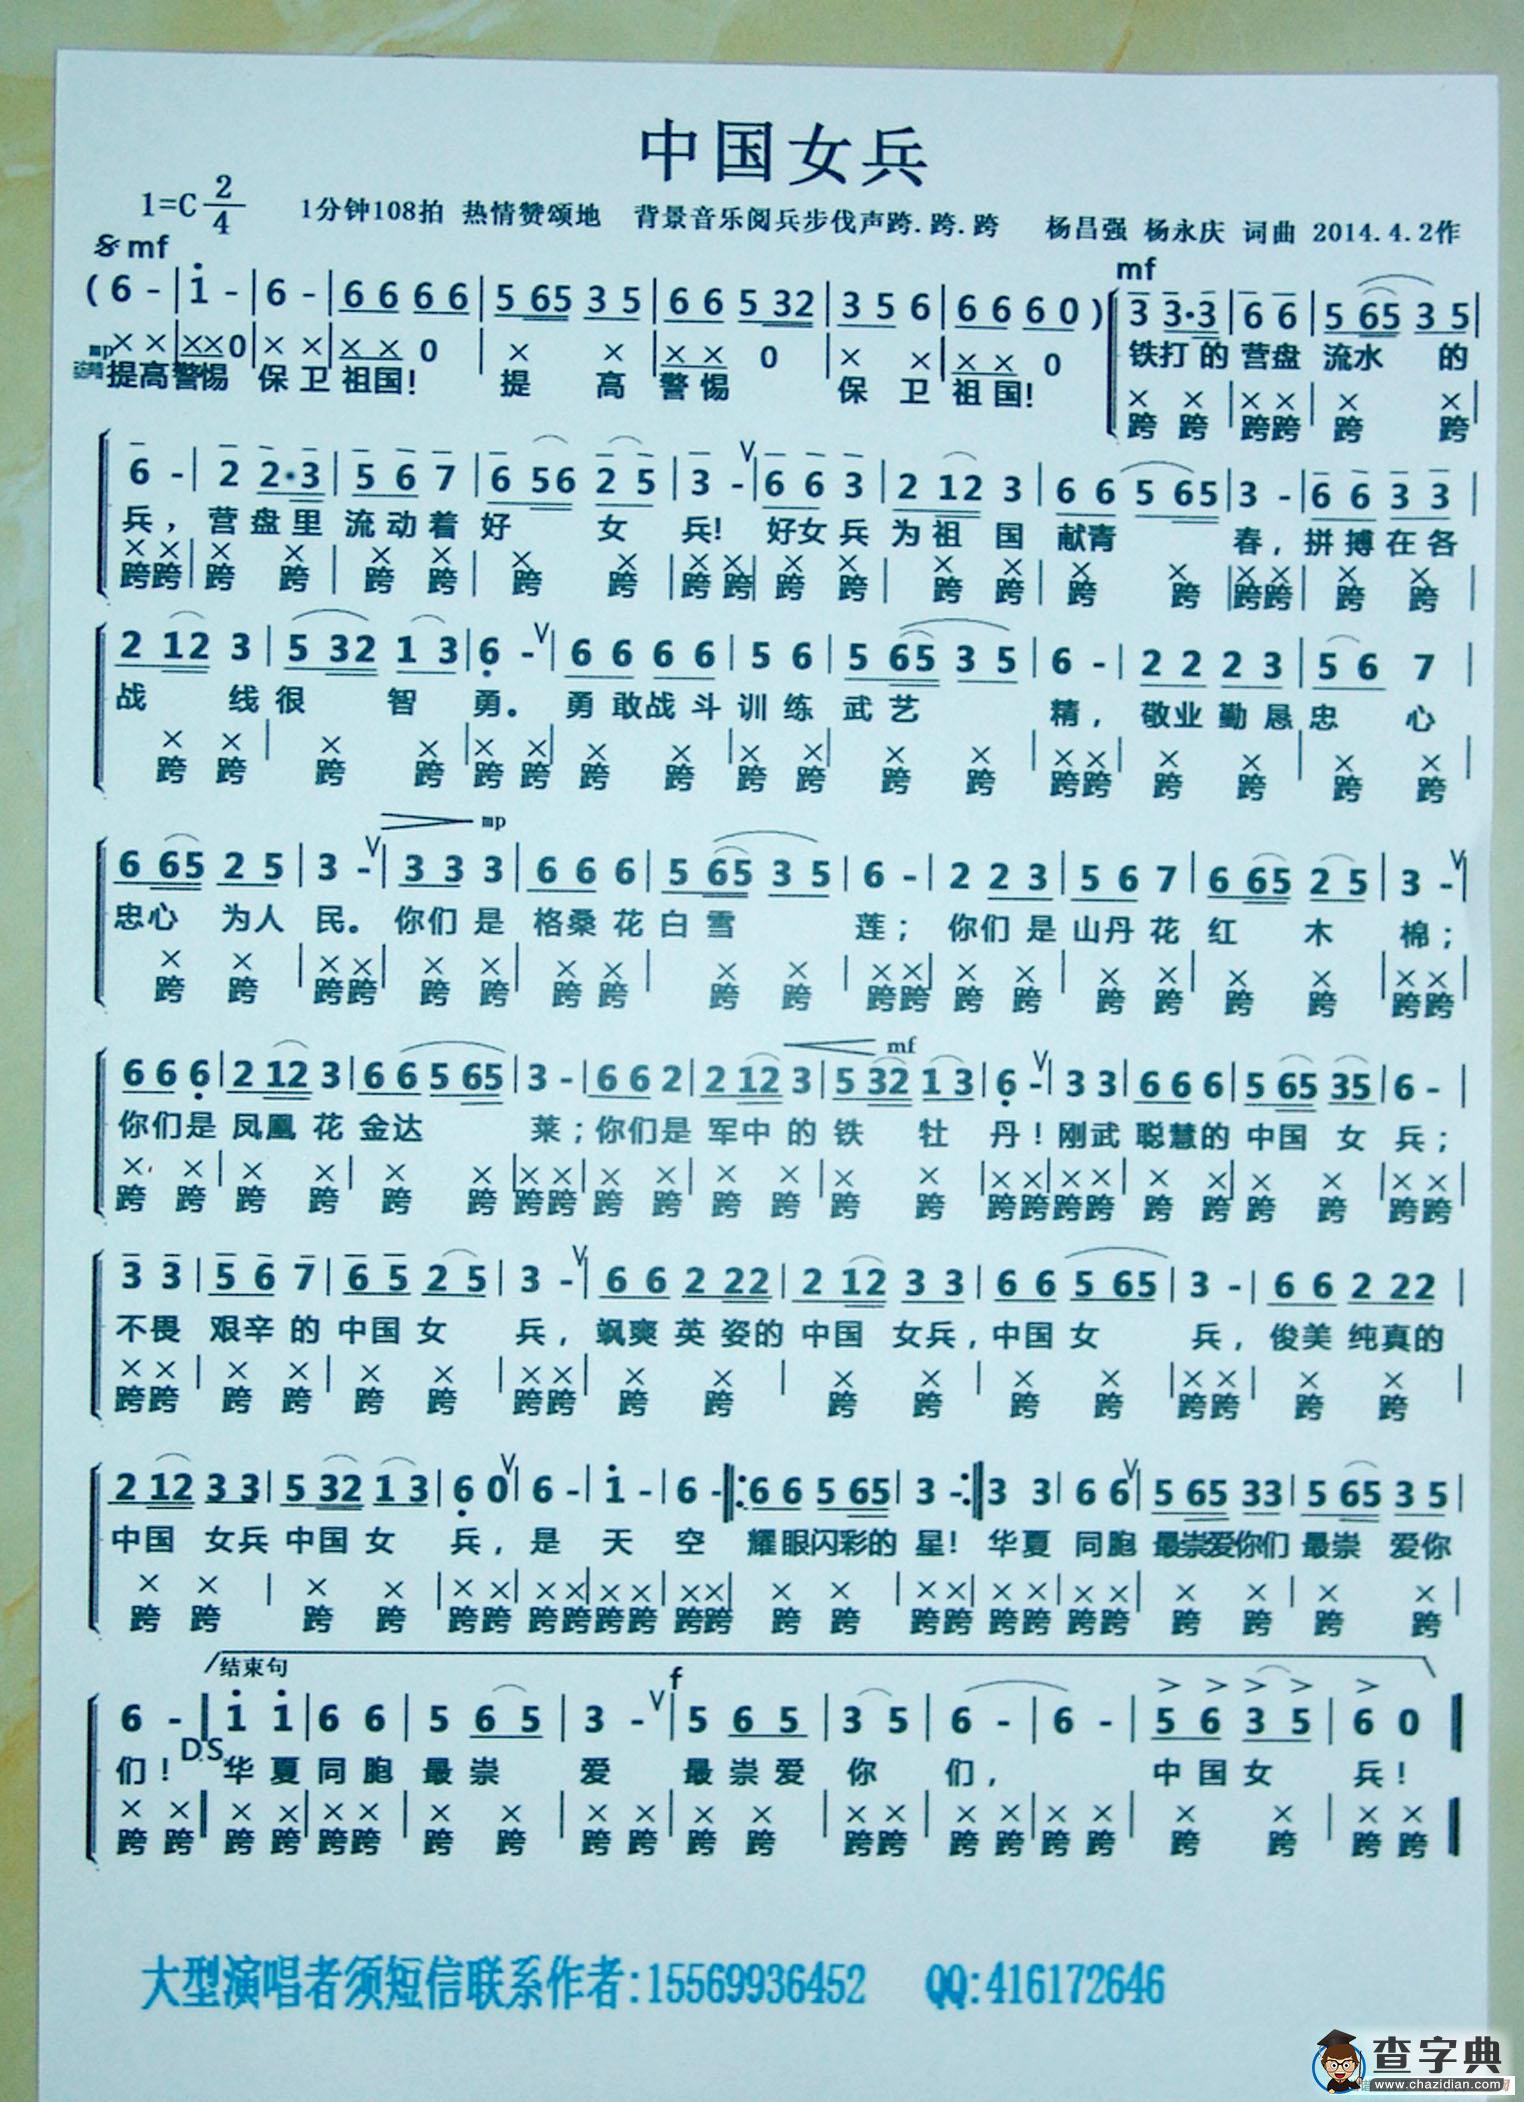 中国女兵
1=C 2/4 1分钟108拍 热情赞颂地 背景音乐阅兵步伐声跨.跨.跨 杨昌强 杨永庆 词曲 2014.4.2作
mf mf
( 6 - | 1 - | 6 - | 6 6 6 6 | 5 65 3 5 | 6 6 5 32 | 3 5 6 | 6 6 6 0 ) | 3 3·3 | 6 6 | 5 65 3 5 |
mp × × | ×× 0 | × × | × × 0 | × × | × × 0 | × × | × × 0
提高警惕 保卫祖国! 提高警惕 保卫祖国! 铁打的营盘流水的
× × | × × | × × |
跨 跨 跨跨 跨 跨
6 - | 2 2·3 | 5 6 7 | 6 56 2 5 | 3 - ∨ | 6 6 3 | 2 12 3 | 6 6 5 65 | 3 - | 6 6 3 3 |
兵，营盘里流动着好女兵! 好女兵为祖国献青春，拼搏在各
× × | × × | × × | × × | × × | × × | × × | × × | × × | × × |
跨跨 跨 跨 跨 跨 跨 跨 跨 跨 跨 跨 跨 跨 跨 跨 跨跨 跨 跨
2 12 3 | 5 32 1 3 | 6 - ∨ | 6 6 6 6 | 5 6 | 5 65 3 5 | 6 - | 2 2 2 3 | 5 6 7 |
战线很智勇。勇敢战斗训练武艺精，敬业勤恳忠心
× × | × × | × × | × × | × × | × × | × × | × × | × × |
跨 跨 跨 跨 跨 跨 跨 跨 跨 跨 跨 跨 跨跨 跨 跨 跨 跨
mp
6 65 2 5 | 3 - ∨ | 3 3 3 | 6 6 6 | 5 65 3 5 | 6 - | 2 2 3 | 5 6 7 | 6 65 2 5 | 3 - ∨ |
忠心为人民。你们是格桑花白雪莲；你们是山丹花红木棉；
× × | × × | × × | × × | × × | × × | × × | × × | × × | × × |
跨 跨 跨跨 跨 跨 跨 跨 跨 跨 跨跨 跨 跨 跨 跨 跨 跨 跨跨
mf
6 6 6 | 2 12 3 | 6 6 5 65 | 3 - | 6 6 2 | 2 12 3 | 5 32 1 3 | 6 - ∨ | 3 3 | 6 6 6 | 5 65 35 | 6 - |
你们是凤凰花金达莱；你们是军中的铁牡丹！刚武聪慧的中国女兵；
× × | × × | × × | × × | × × | × × | × × | × × | × × | × × | × × | × × |
跨 跨 跨 跨 跨 跨 跨跨 跨 跨 跨 跨 跨 跨 跨跨 跨跨 跨 跨 跨 跨 跨跨
3 3 | 5 6 7 | 6 5 2 5 | 3 - ∨ | 6 6 2 22 | 2 12 3 3 | 6 6 5 65 | 3 - | 6 6 2 22 |
不畏艰辛的中国女兵，飒爽英姿的中国女兵，中国女兵，俊美纯真的
× × | × × | × × | × × | × × | × × | × × | × × | × × |
跨跨 跨 跨 跨 跨 跨跨 跨 跨 跨 跨 跨 跨 跨跨 跨 跨
2 12 3 3 | 5 32 1 3 | 6 0 ∨ | 6 - | 1 - | 6 - |: 6 6 5 65 | 3 - :| 3 3 | 6 6 ∨ | 5 65 33 | 5 65 3 5 |
中国女兵中国女兵，是天空耀眼闪彩的星！华夏同胞最崇爱你们最崇爱你
× × | × × | × × | × × | × × | × × | × × | × × | × × | × × | × × | × × |
跨 跨 跨 跨 跨跨 跨跨 跨跨 跨跨 跨 跨 跨跨 跨跨 跨跨 跨 跨 跨 跨
结束句 f
6 - ‖ 1 1 | 6 6 | 5 6 5 | 3 - ∨ | 5 6 5 | 3 5 | 6 - | 6 - | 5 6 3 5 | 6 0 ‖
D.S.
们！ 华夏同胞最崇爱 最崇爱你们， 中国女兵！
× × ‖ × × | × × | × × | × × | × × | × × | × × | × × | × × | × × ‖
跨 跨 跨 跨 跨跨 跨 跨 跨 跨 跨 跨 跨跨 跨 跨 跨 跨 跨 跨 跨 跨
大型演唱者须短信联系作者:15569936452 QQ:416172646
查字典
www.chazidian.com